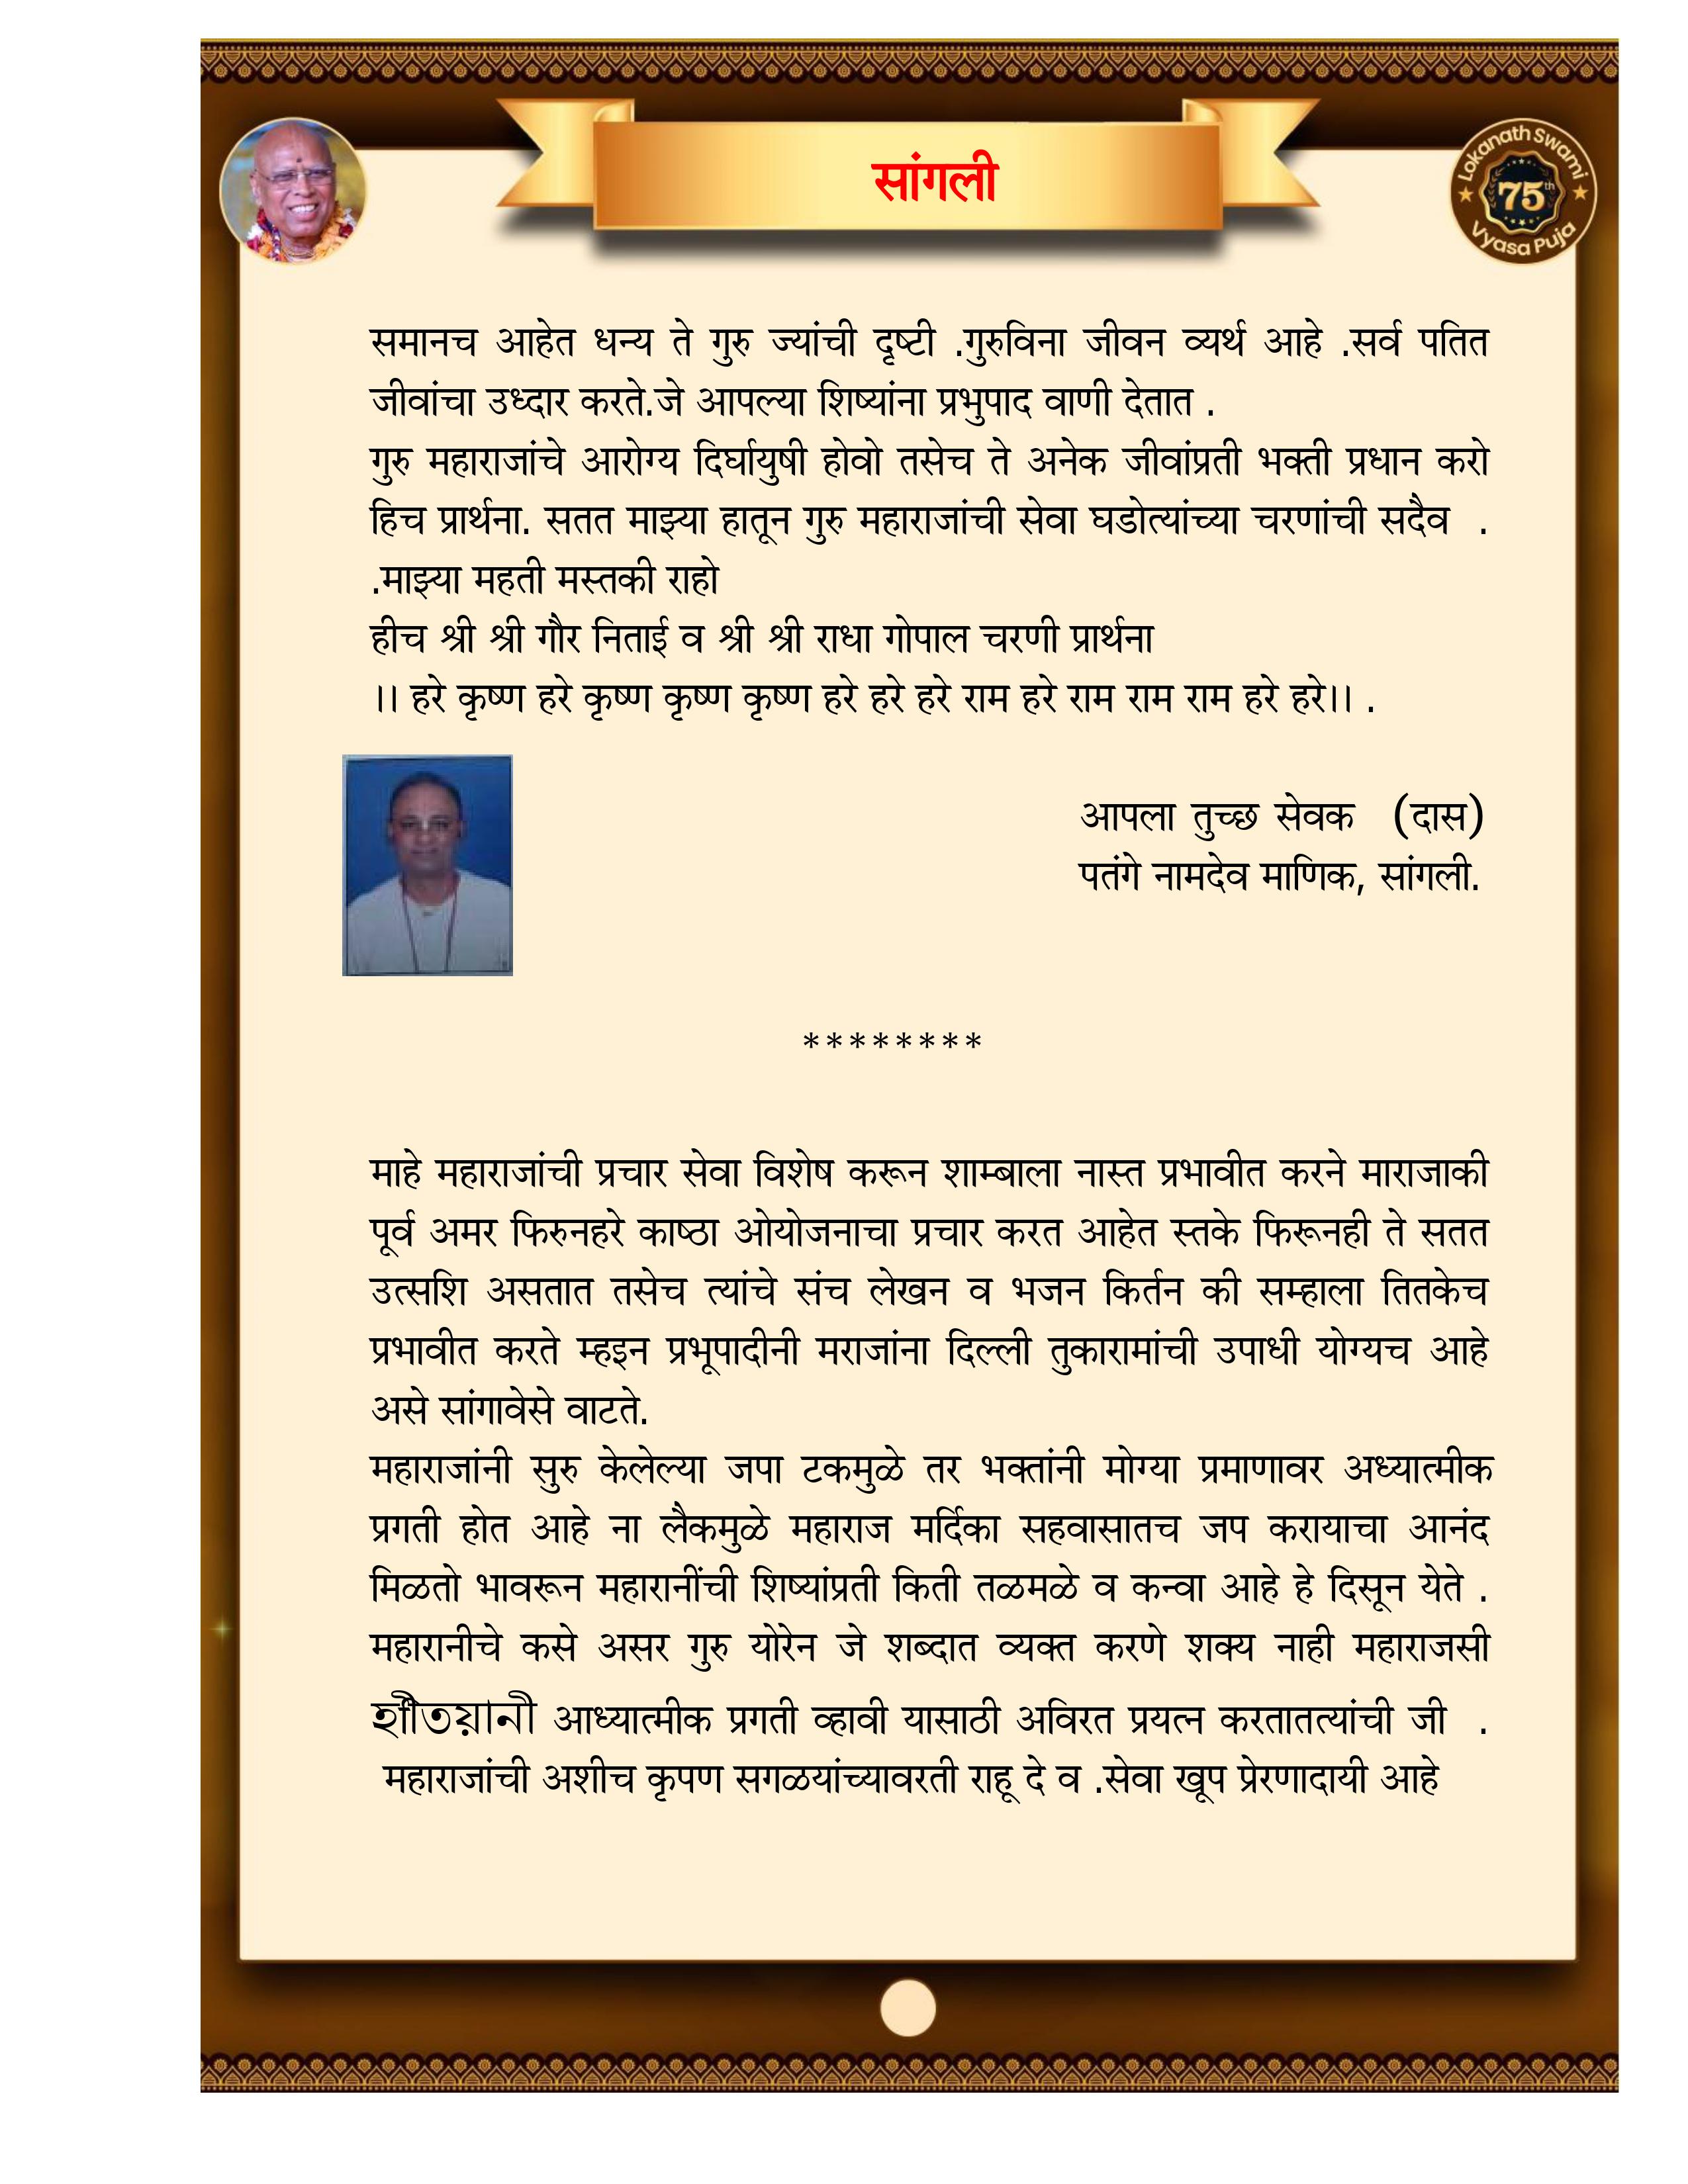 सांगली
Lokanath Swami
75th
Vyasa Puja
समानच आहेत धन्य ते गुरु ज्यांची दृष्टी .गुरुविना जीवन व्यर्थ आहे .सर्व पतित
जीवांचा उध्दार करते.जे आपल्या शिष्यांना प्रभुपाद वाणी देतात .
गुरु महाराजांचे आरोग्य दिर्घायुषी होवो तसेच ते अनेक जीवांप्रती भक्ती प्रधान करो
हिच प्रार्थना. सतत माझ्या हातून गुरु महाराजांची सेवा घडोत्यांच्या चरणांची सदैव .
.माझ्या महती मस्तकी राहो
हीच श्री श्री गौर निताई व श्री श्री राधा गोपाल चरणी प्रार्थना
।। हरे कृष्ण हरे कृष्ण कृष्ण कृष्ण हरे हरे हरे राम हरे राम राम राम हरे हरे।। .
आपला तुच्छ सेवक (दास)
पतंगे नामदेव माणिक, सांगली.
********
माहे महाराजांची प्रचार सेवा विशेष करून शाम्बाला नास्त प्रभावीत करने माराजाकी
पूर्व अमर फिरुनहरे काष्ठा ओयोजनाचा प्रचार करत आहेत स्तके फिरूनही ते सतत
उत्सशि असतात तसेच त्यांचे संच लेखन व भजन किर्तन की सम्हाला तितकेच
प्रभावीत करते म्हइन प्रभूपादीनी मराजांना दिल्ली तुकारामांची उपाधी योग्यच आहे
असे सांगावेसे वाटते.
महाराजांनी सुरु केलेल्या जपा टकमुळे तर भक्तांनी मोग्या प्रमाणावर अध्यात्मीक
प्रगती होत आहे ना लैकमुळे महाराज मर्दिका सहवासातच जप करायाचा आनंद
मिळतो भावरून महारानींची शिष्यांप्रती किती तळमळे व कन्वा आहे हे दिसून येते .
महारानीचे कसे असर गुरु योरेन जे शब्दात व्यक्त करणे शक्य नाही महाराजसी
आध्यात्मीक प्रगती व्हावी यासाठी अविरत प्रयत्न करतातत्यांची जी .
महाराजांची अशीच कृपण सगळयांच्यावरती राहू दे व .सेवा खूप प्रेरणादायी आहे